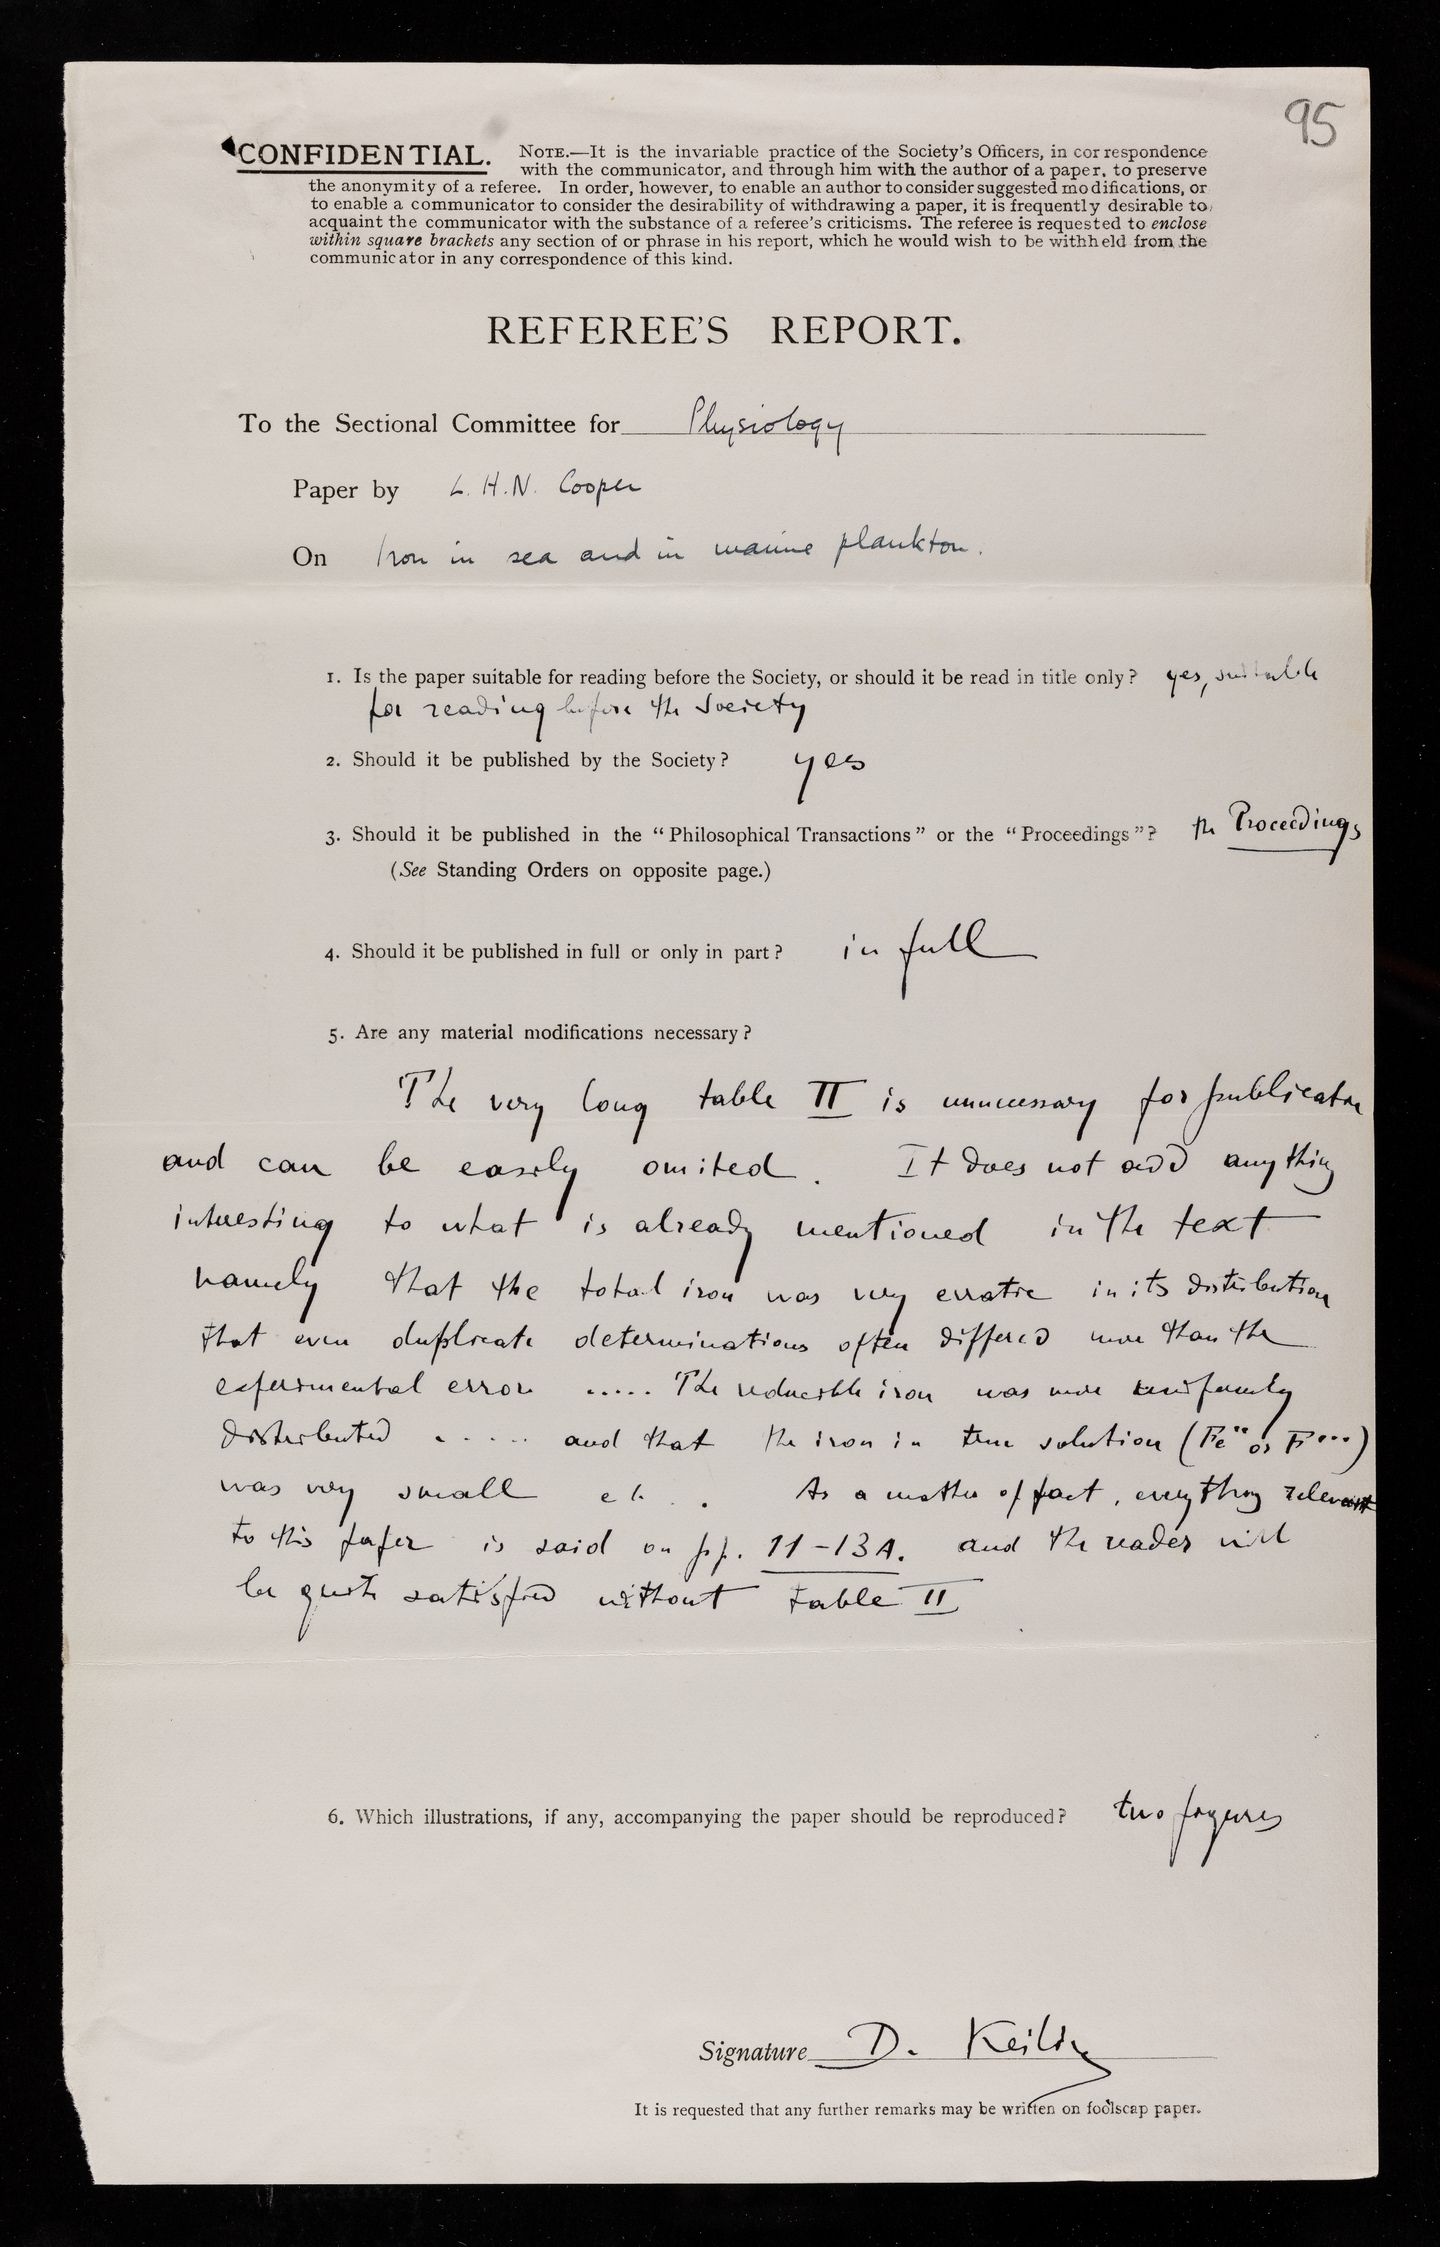 95
CONFIDENTIAL. NOTE.—It is the invariable practice of the Society's Officers, in correspondence
with the communicator, and through him with the author of a paper, to preserve
the anonymity of a referee. In order, however, to enable an author to consider suggested modifications, or
to enable a communicator to consider the desirability of withdrawing a paper, it is frequently desirable to
acquaint the communicator with the substance of a referee's criticisms. The referee is requested to enclose
within square brackets any section of or phrase in his report, which he would wish to be withheld from the
communicator in any correspondence of this kind.
REFEREE'S REPORT.
To the Sectional Committee for Physiology
Paper by L. H. N. Cooper
On Iron in sea and in marine plankton.
1. Is the paper suitable for reading before the Society, or should it be read in title only? yes, suitable
for reading before the Society
2. Should it be published by the Society? yes
3. Should it be published in the "Philosophical Transactions" or the "Proceedings"? the Proceedings
(See Standing Orders on opposite page.)
4. Should it be published in full or only in part? in full
5. Are any material modifications necessary?
The very long table II is unnecessary for publication
and can be easily omited. It does not add anything
interesting to what is already mentioned in the text
namely that the total iron was very erratic in its distribution
that even duplicate determinations often differed more than the
experimental error ..... The reducible iron was more uniformly
distributed ..... and that the iron in true solution (Fe·· or F···)
was very small etc. . As a matter of fact, everything relevant
to this paper is said on pp. 11-13A. and the reader will
be quite satisfied without table II
6. Which illustrations, if any, accompanying the paper should be reproduced? two figures
Signature D. Keilin
It is requested that any further remarks may be written on foolscap paper.